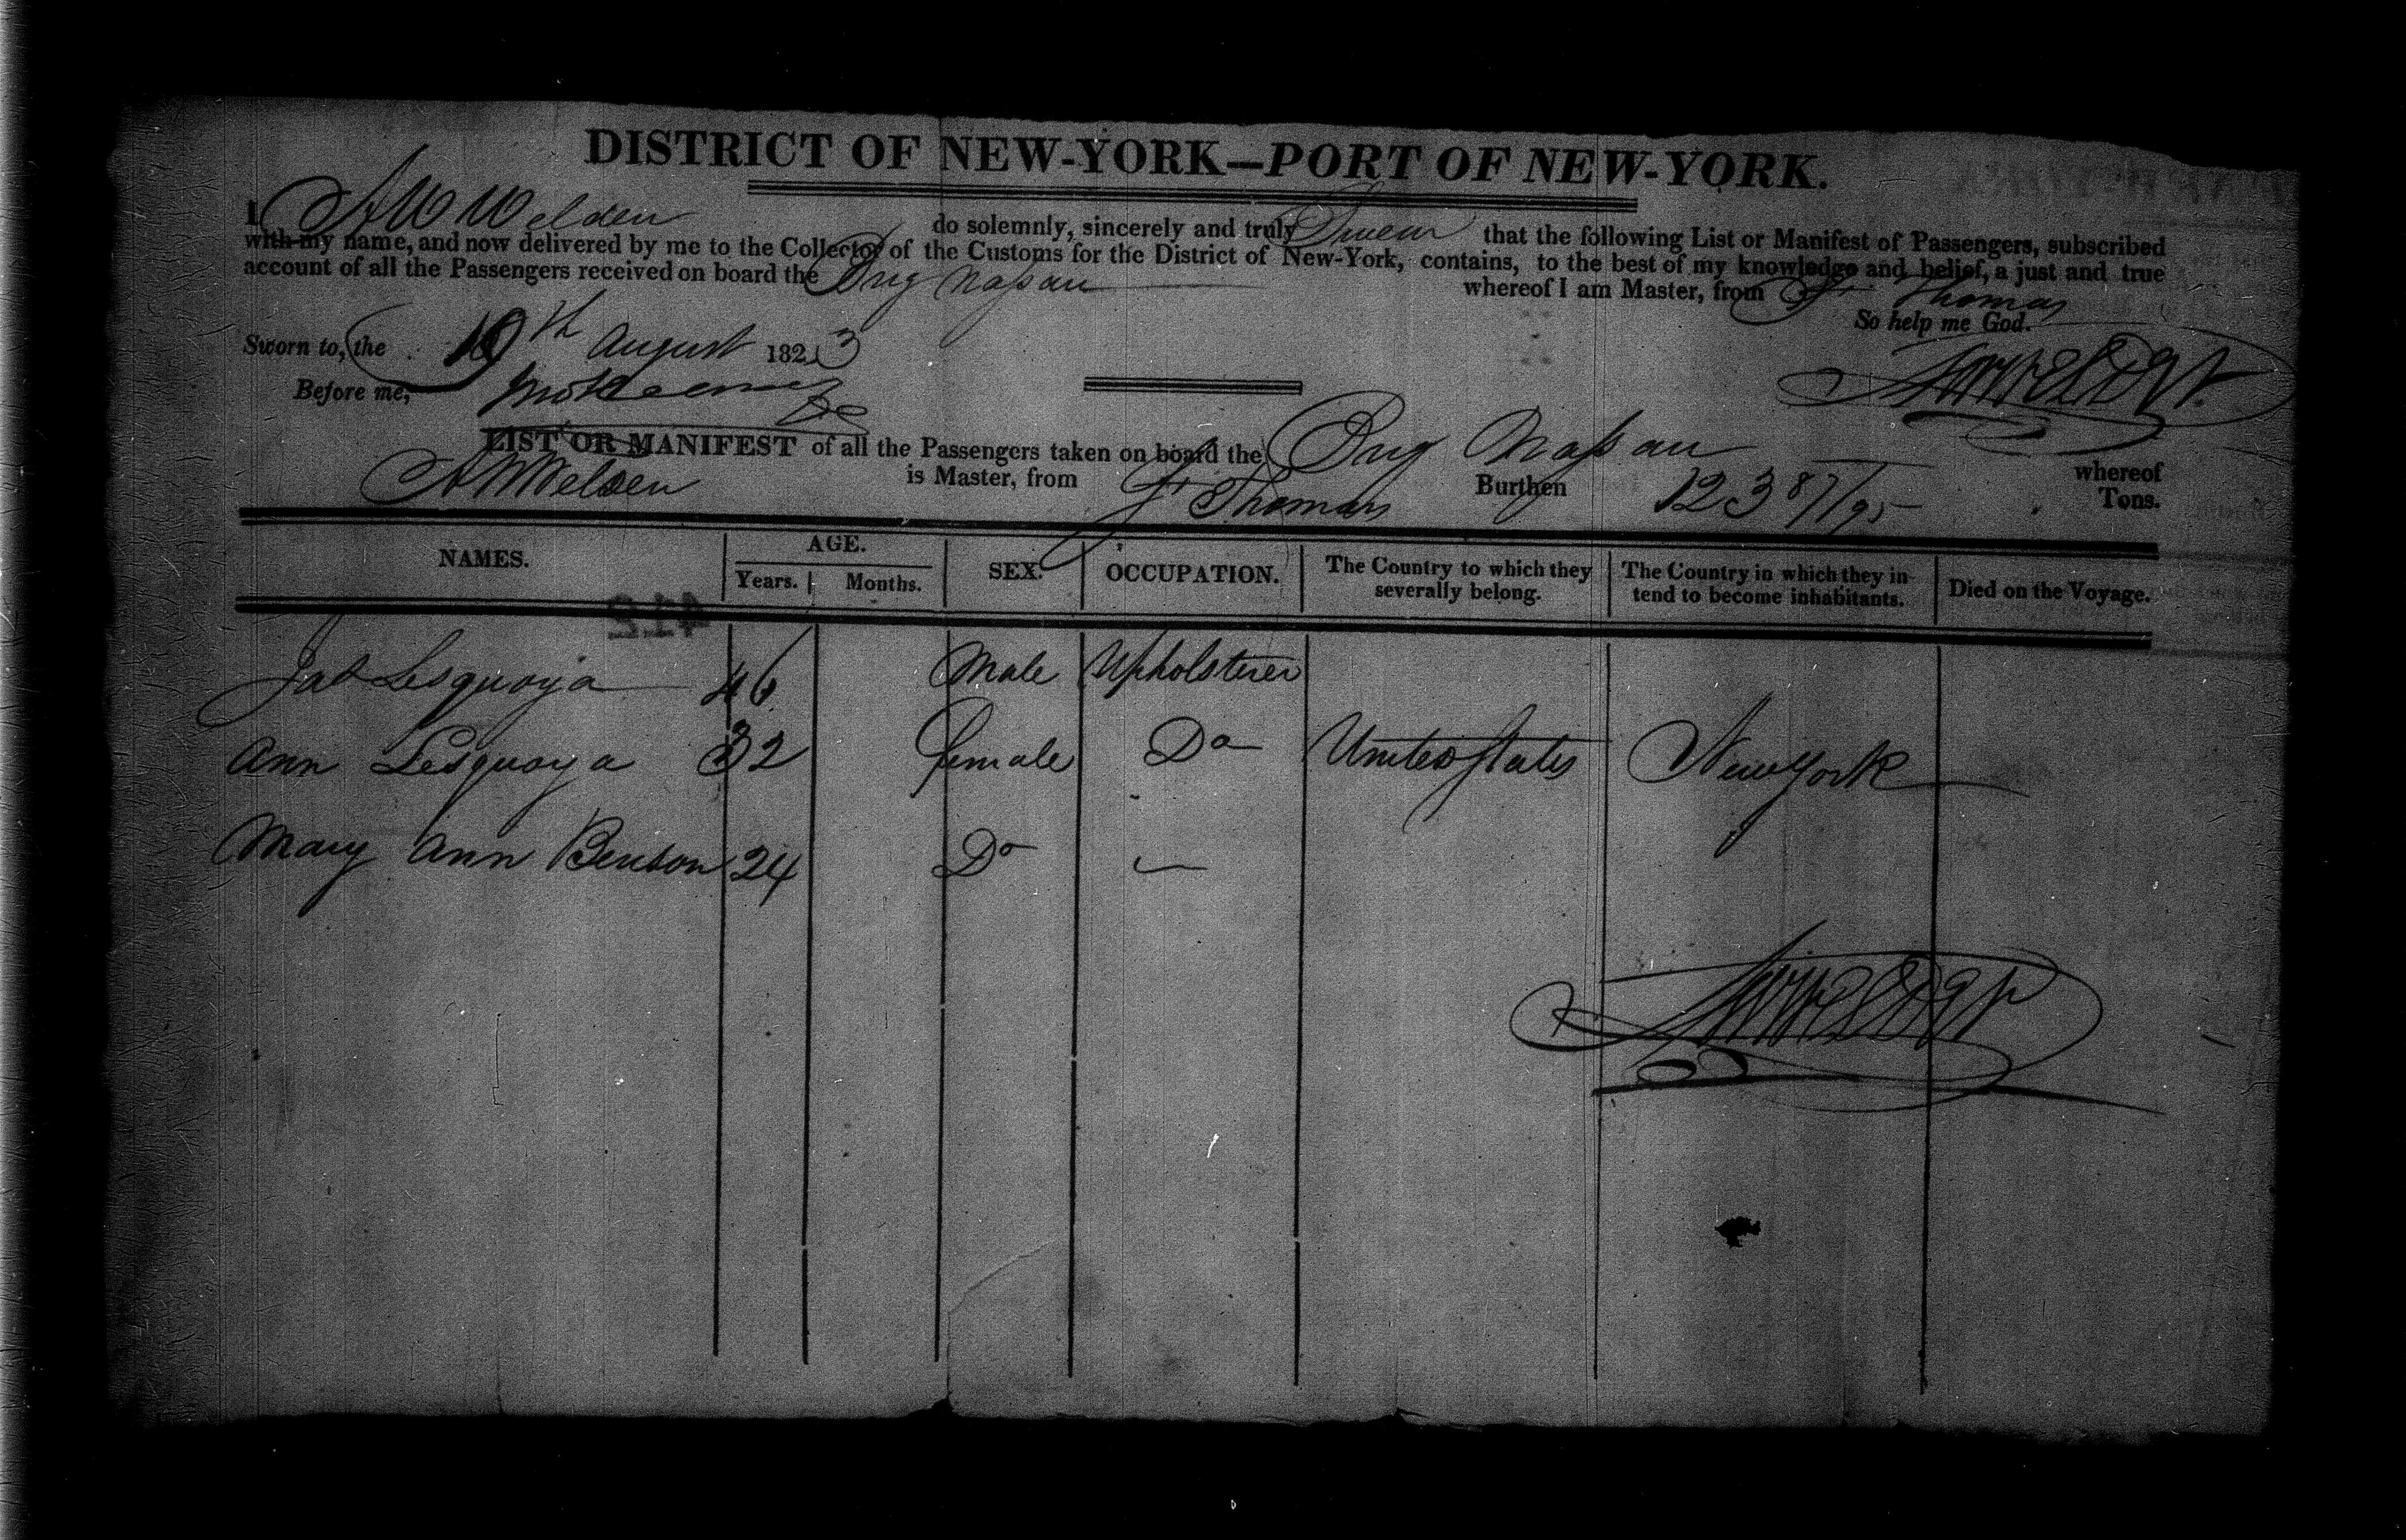 DISTRICT OF NEW-YORK—PORT OF NEW-YORK.
I A W Welden do solemnly, sincerely and truly Swear that the following List or Manifest of Passengers, subscribed
with my name, and now delivered by me to the Collector of the Customs for the District of New-York, contains, to the best of my knowledge and belief, a just and true
account of all the Passengers received on board the Brig Nassau whereof I am Master, from St Thomas
So help me God.
Sworn to, the 19th August 1823
Before me,
LIST OR MANIFEST of all the Passengers taken on board the Brig Nassau whereof
A W Welden is Master, from St Thomas Burthen 123 87/95 Tons.
NAMES. AGE. SEX. OCCUPATION. The Country to which they severally belong. The Country in which they intend to become inhabitants. Died on the Voyage.
Years. Months.
Jas Lesquoya 46 Male Upholsterer
Ann Lesquoya 32 female Do United States New York
Mary Ann Benson 24 Do —